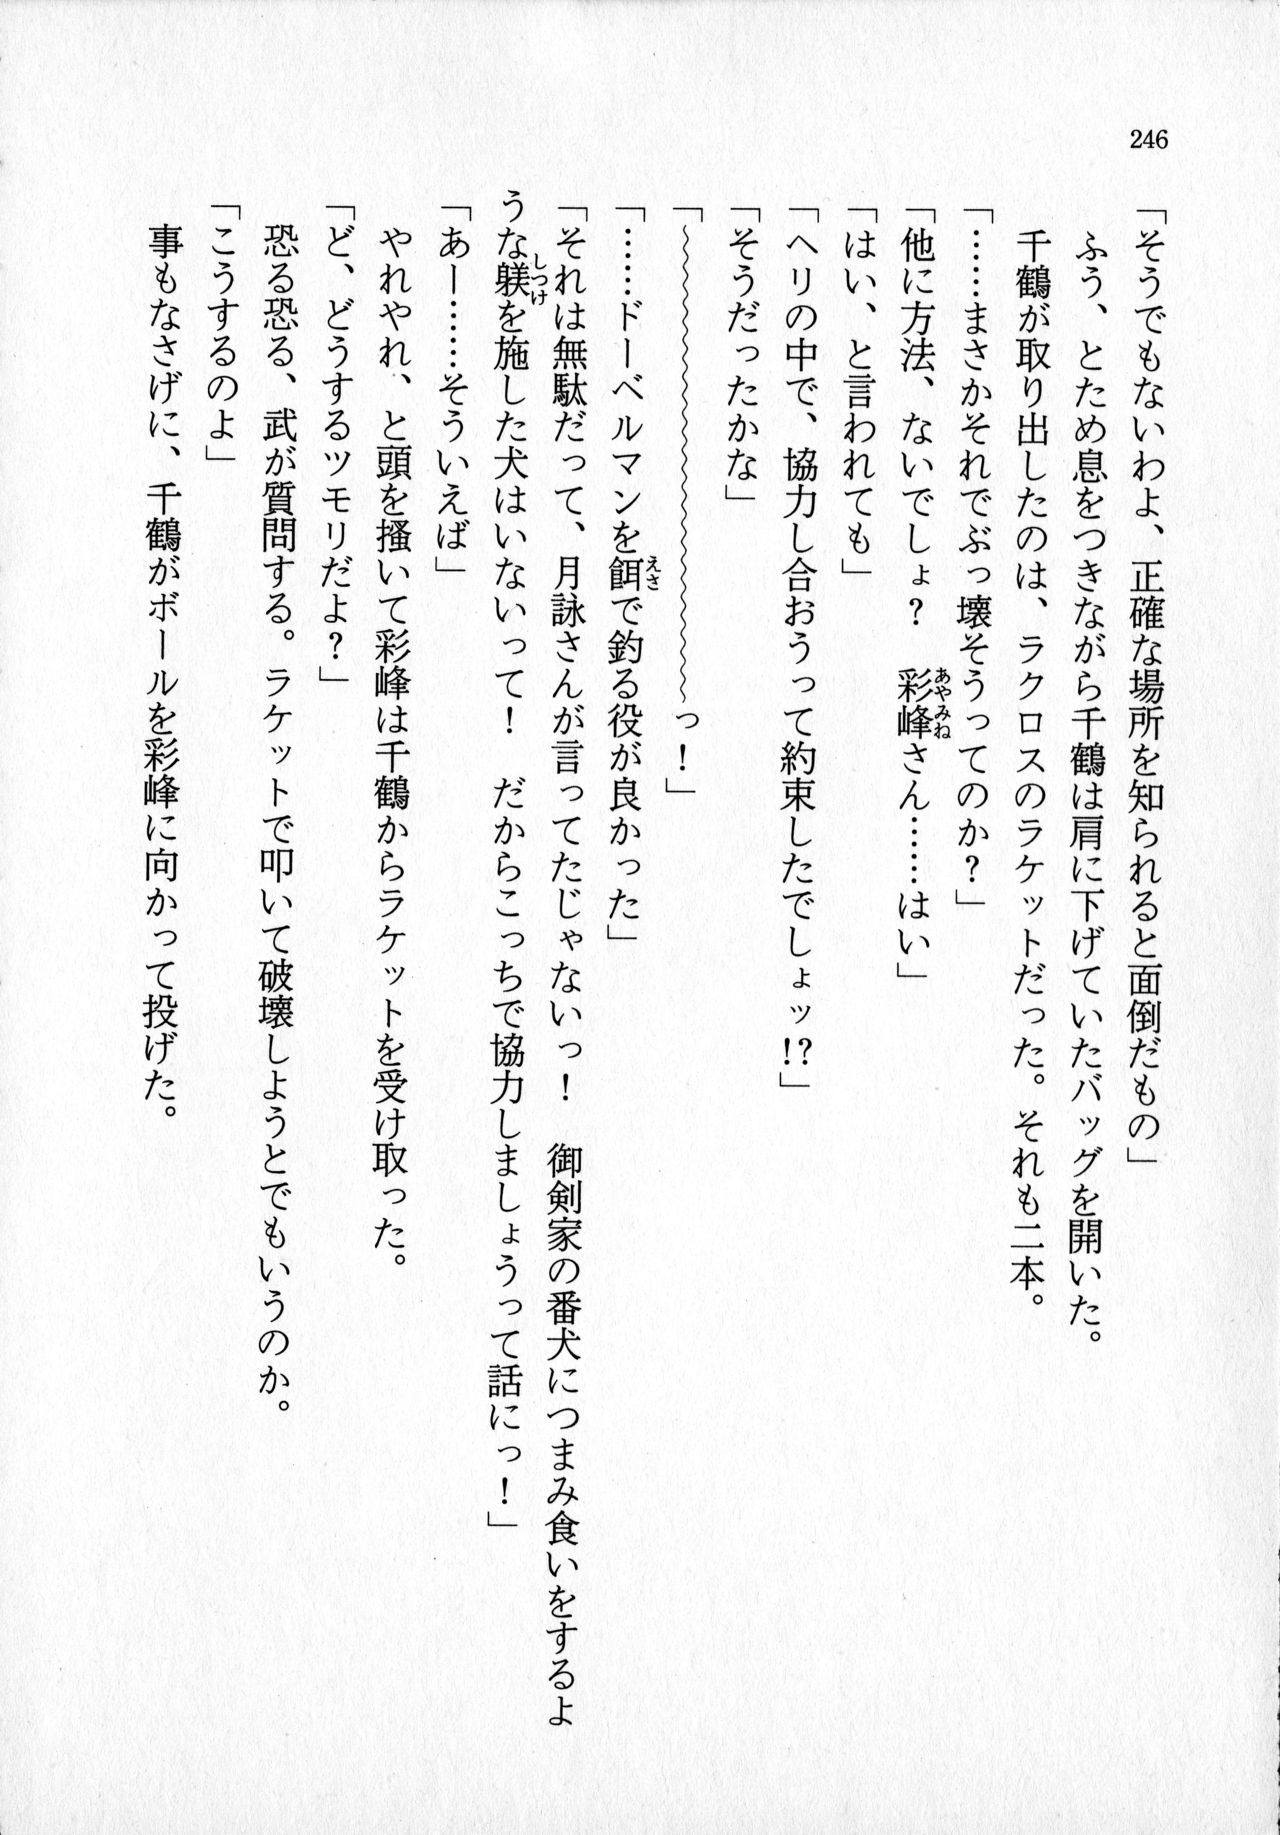 246
「そうでもないわよ、正確な場所を知られると面倒だもの」
ふう、とため息をつきながら千鶴は肩に下げていたバッグを開いた。
千鶴が取り出したのは、ラクロスのラケットだった。それも二本。
「……まさかそれでぶっ壊そうってのか？」
「他に方法、ないでしょ？　彩峰さん……はい」
「はい、と言われても」
「ヘリの中で、協力し合おうって約束したでしょッ!?」
「そうだったかな」
「～～～～～～～～～～～～～っ！」
「……ドーベルマンを餌で釣る役が良かった」
「それは無駄だって、月詠さんが言ってたじゃないっ！　御剣家の番犬につまみ食いをするよ
うな躾を施した犬はいないって！　だからこっちで協力しましょうって話にっ！」
「あー……そういえば」
やれやれ、と頭を掻いて彩峰は千鶴からラケットを受け取った。
「ど、どうするツモリだよ？」
恐る恐る、武が質問する。ラケットで叩いて破壊しようとでもいうのか。
「こうするのよ」
事もなさげに、千鶴がボールを彩峰に向かって投げた。
あやみね
えさ
しつけ